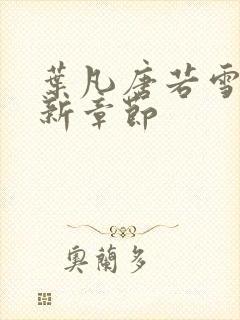 葉凡唐若雪
新章節
奧蘭多